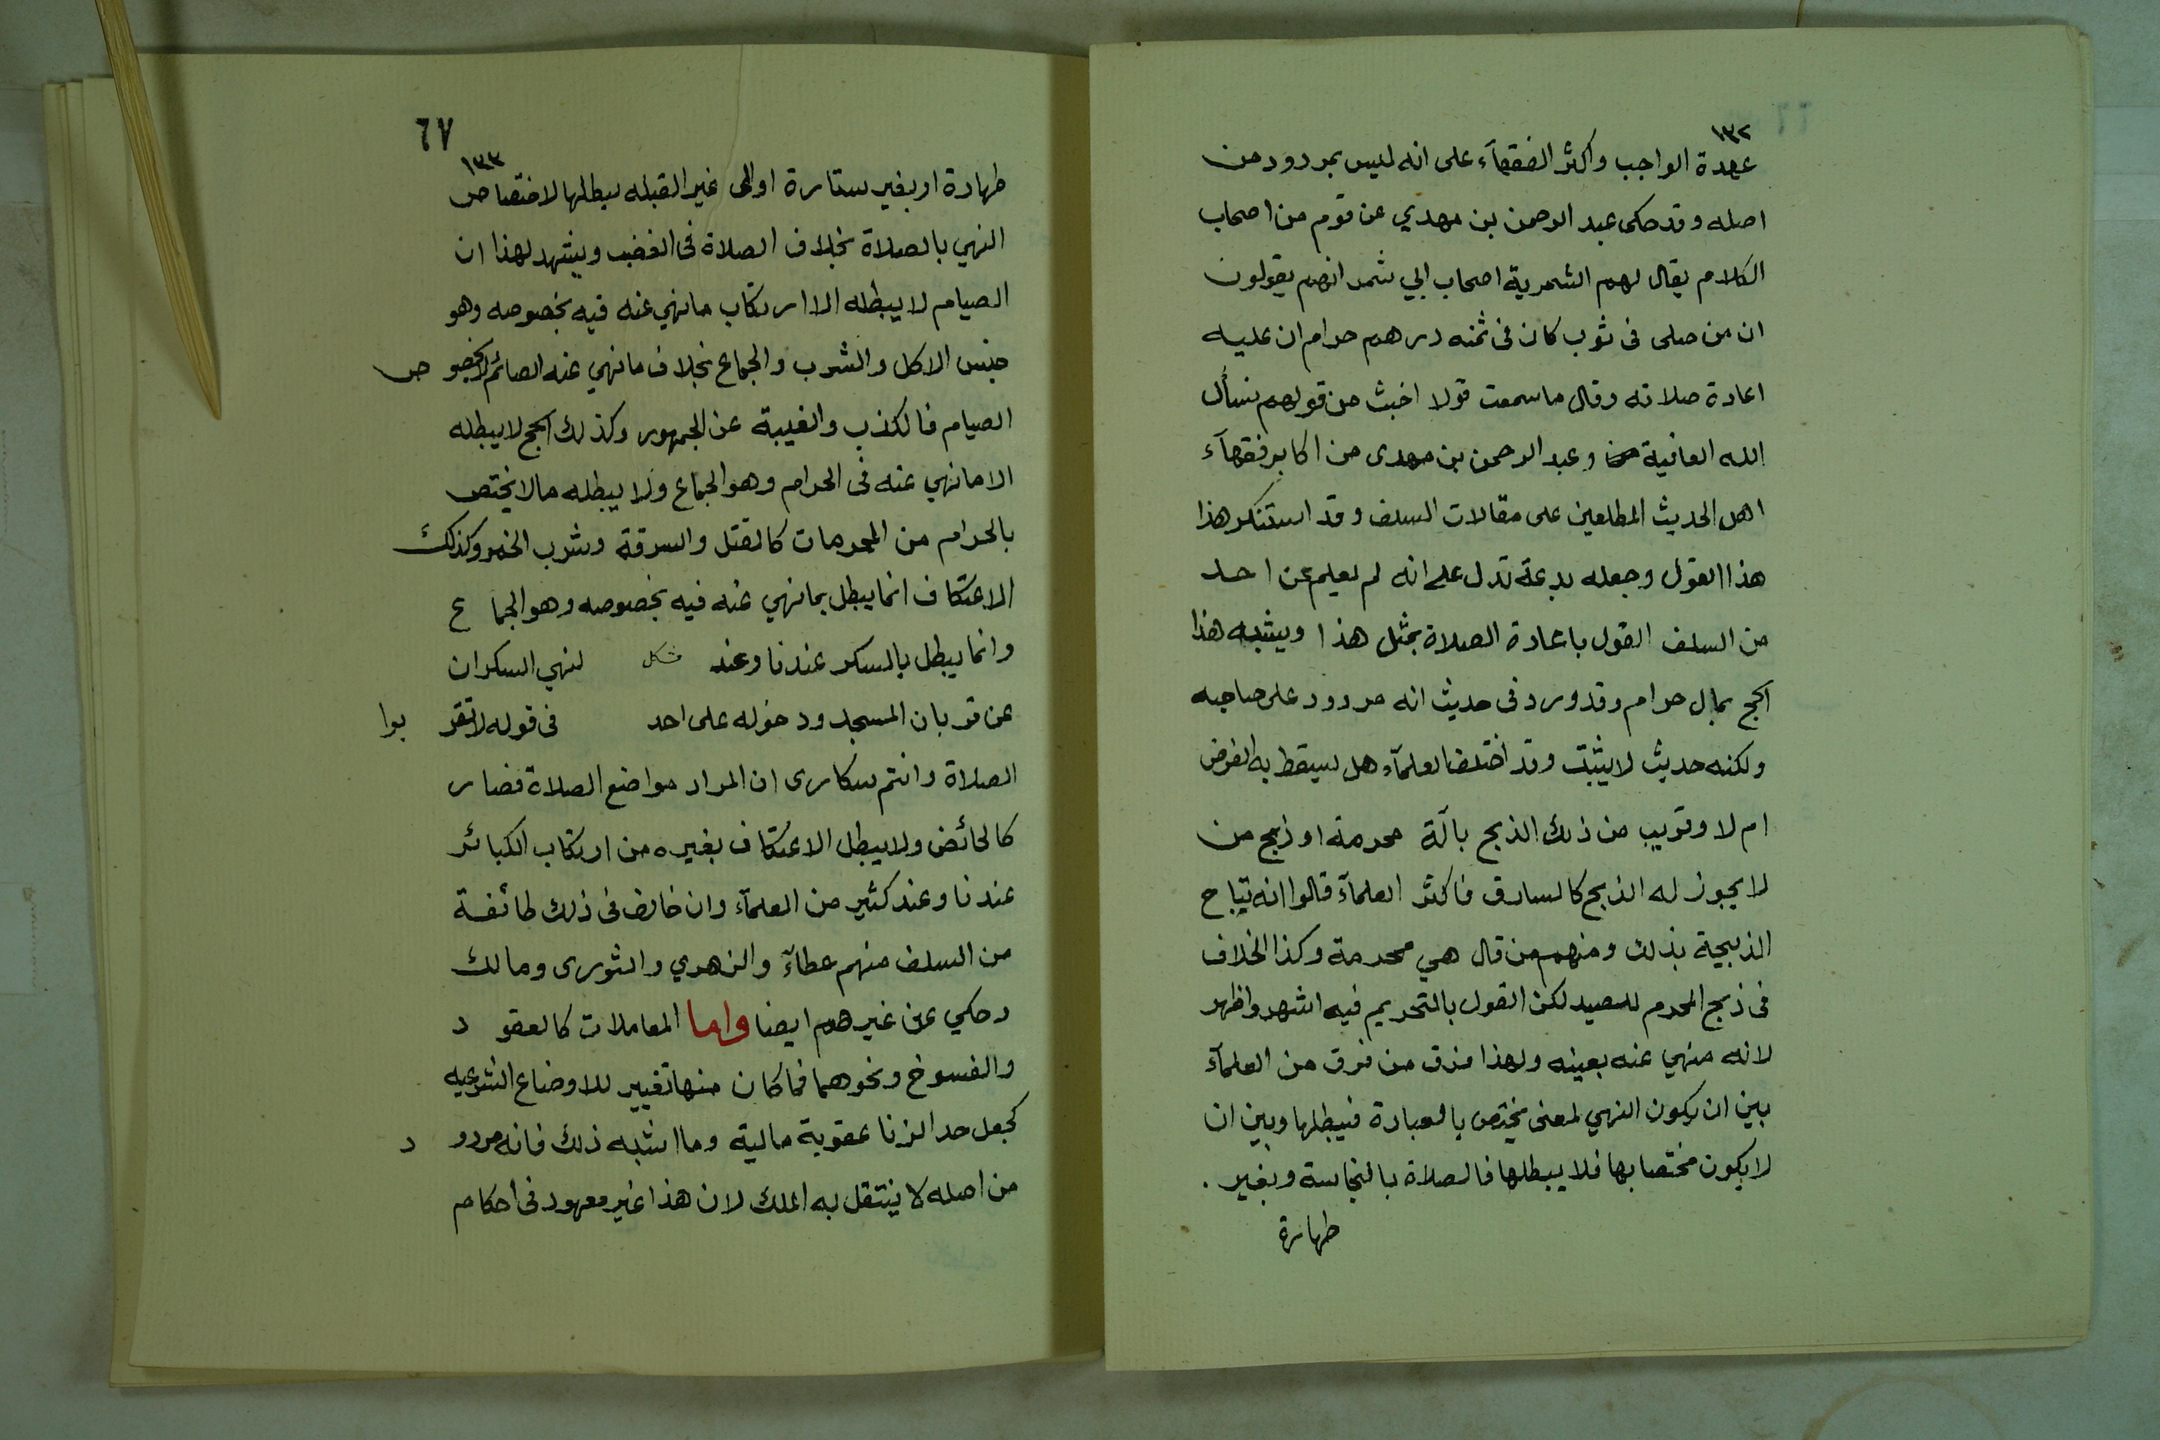 ١٣٢
عهدة الواجب واكثر الفقهآء على انه ليس بمردود من
اصله وقد حكى عبد الرحمن بن مهدي عن قوم من اصحاب
الكلام يقال لهم الشمرية اصحاب ابي شمر انهم يقولون
ان من صلى فى ثوب كان فى ثمنه درهم حرام ان عليه
اعادة صلاته وقال ما سمعت قولا اخبث من قولهم نسأل
الله العافية وعبد الرحمن بن مهدى من اكابر فقهآء
اهل الحديث المطلعين على مقالات السلف وقد استنكر هذا
هذا القول وجعله بدعة تدل على انه لم يعلم عن احد
من السلف القول باعادة الصلاة بمثل هذا ويشبه هذا
الحج بمال حرام وقد ورد فى حديث انه مردود على صاحبه
ولكنه حديث لا يثبت وقد اختلف العلمآء هل يسقط به الفرض
ام لا وقريب من ذلك الذبح بآلة محرمة او ذبح من
لا يجوز له الذبح كالسارق فاكثر العلمآء قالوا انه تباح
الذبيحة بذلك ومنهم من قال هي محرمة وكذا الخلاف
فى ذبح المحرم للصيد لكن القول بالتحريم فيه اشهر واظهر
لانه منهي عنه بعينه ولهذا فرق من فرق من العلمآء
بين ان يكون النهي لمعنى يختص بالعبادة فيبطلها وبين ان
لا يكون مختصا بها فلا يبطلها فالصلاة بالنجاسة وبغير
طهارة
٦٧
١٣٣
طهارة او بغير ستارة او الى غير القبله يبطلها لاختصاص
النهي بالصلاة بخلاف الصلاة فى الغضب ويشهد لهذا ان
الصيام لا يبطله الا ارتكاب ما نهي عنه فيه بخصوصه وهو
جنس الاكل والشرب والجماع بخلاف ما نهي عنه الصائم لا بخصوص
الصيام فالكذب والغيبة عن الجمهور وكذلك الحج لا يبطله
الا ما نهي عنه فى الحرام وهو الجماع ولا يبطله ما لا يختص
بالحرام من المحرمات كالقتل والسرقة وشرب الخمر وكذلك
الاعتكاف انما يبطل بما نهي عنه فيه بخصوصه وهو الجماع
وانما يبطل بالسكر عندنا وعند شكل لنهي السكران
عن قربان المسجد ودخوله على احد فى قوله لا تقربوا
الصلاة وانتم سكارى ان المراد مواضع الصلاة فصار
كالحائض ولا يبطل الاعتكاف بغيره من ارتكاب الكبائر
عندنا وعند كثير من العلمآء وان خالف فى ذلك طائفة
من السلف منهم عطآء والزهري والثورى ومالك
وحكي عن غيرهم ايضا واما المعاملات كالعقود
والفسوخ ونحوهما فما كان منها تغيير للاوضاع الشرعيه
كجعل حد الزنا عقوبة مالية وما اشبه ذلك فانه مردود
من اصله لا ينتقل به الملك لان هذا غير معهود فى احكام